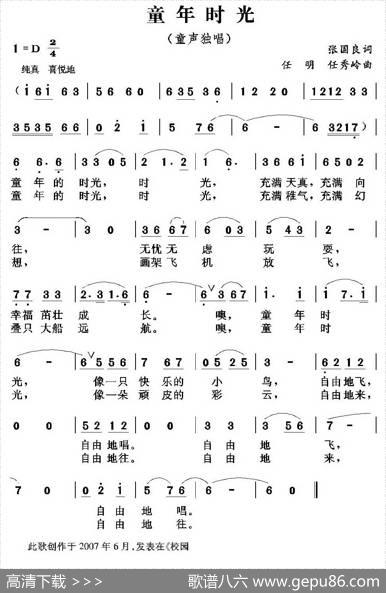 童年时光
(童声独唱)
1=D 2/4
张国良词
纯真 喜悦地
任明 任秀岭曲
(i6i63 | 5660 | 63536 | 1220 | 121233 |
353566 | 02i | 576 | 6- | 63217) |
66·6 | 3305 | 21·2 | 16· | 63165 | 6502 |
童年的时光,时光,充满天真,充满向
童年的时光,时光,充满稚气,充满幻
3- | 3667 | 603 | 543 |
往,无忧无虑玩耍,
想,画架飞机放飞,
7733 | 2·31·6 | 6- | 6367 | i·i | i7·i |
幸福茁壮成长。噢,童年时
叠只大船远航。噢,童年时
6- | 6556 | 767 | 0525 | 3- | 6212 |
光,像一只快乐的小鸟,自由地飞,
光,像一朵顽皮的彩云,自由地来,
00 | 5212 | 00 | 33 | 356 | 7- |
自由地唱。自由地飞,
自由地往。自由地来,
70 | 026 | 5- | 5- | 50 ‖
自由地唱。
自由地往。
此歌创作于2007年6月,发表在《校园
高清下载 >> >>>
歌谱八六 www.gepu86.com